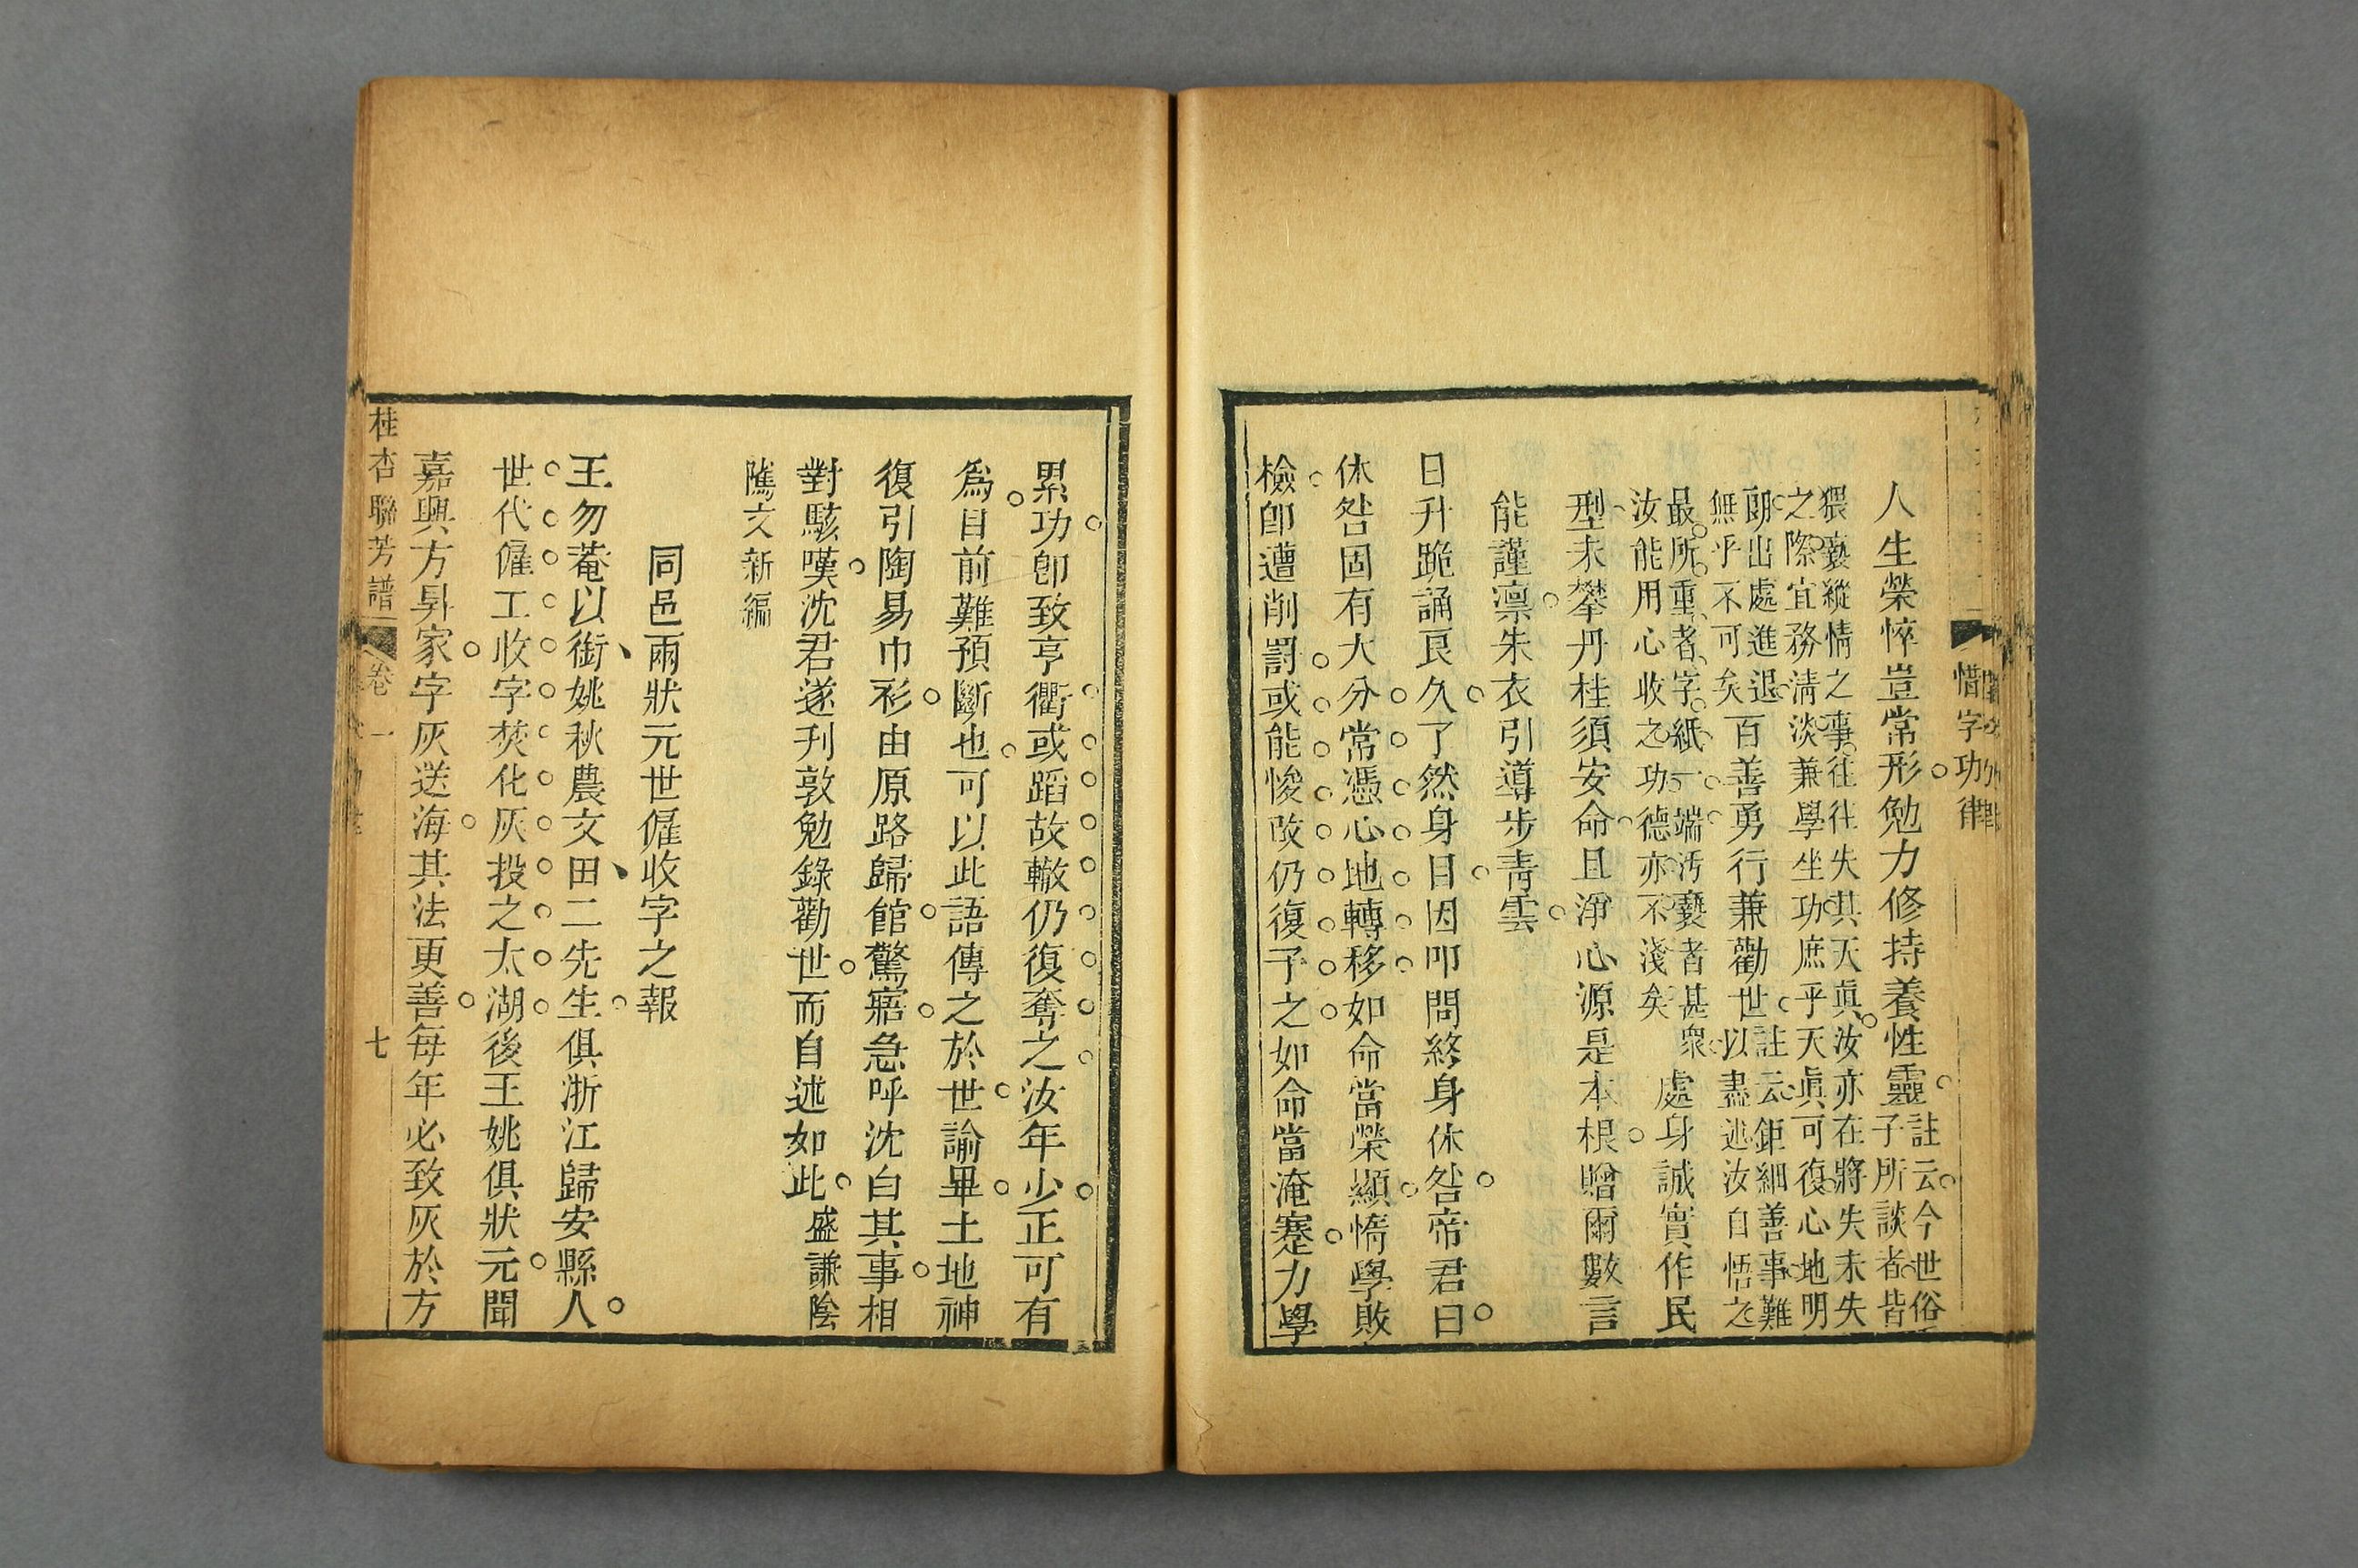 惜字功律
人生榮悴豈常形勉力修持養性靈註云今世俗子所談者皆
猥褻縱情之事往往失其天真汝亦在將失未失
之際宜務淸淡兼學坐功庶乎天眞可復心地明
朗出處進退無乎不可矣百善勇行兼勸世註云鉅細善事難以盡述汝自悟之
最所重者字紙一端汚褻者甚衆
汝能用心收之功德亦不淺矣處身誠實作民
型未攀丹桂須安命且淨心源是本根贈爾數言
能謹凛朱衣引導步靑雲
日升跪誦良久了然身日因叩問終身休咎帝君曰
休咎固有大分常憑心地轉移如命當榮顯惰學敗
檢卽遭削罸或能悛改仍復予之如命當淹蹇力學
累功卽致亨衢或蹈故轍仍復奪之汝年少正可有
爲目前難預斷也可以此語傳之於世諭畢土地神
復引陶易巾衫由原路歸館驚寤急呼沈白其事相
對駭嘆沈君遂刋敦勉錄勸世而自述如此盛謙陰
隲文新編
同邑兩狀元世僱收字之報
王勿菴以銜姚秋農文田二先生俱浙江歸安縣人
世代僱工收字焚化灰投之太湖後王姚俱狀元聞
嘉興方昇家字灰送海其法更善每年必致灰於方
桂杏聯芳譜 卷一 七